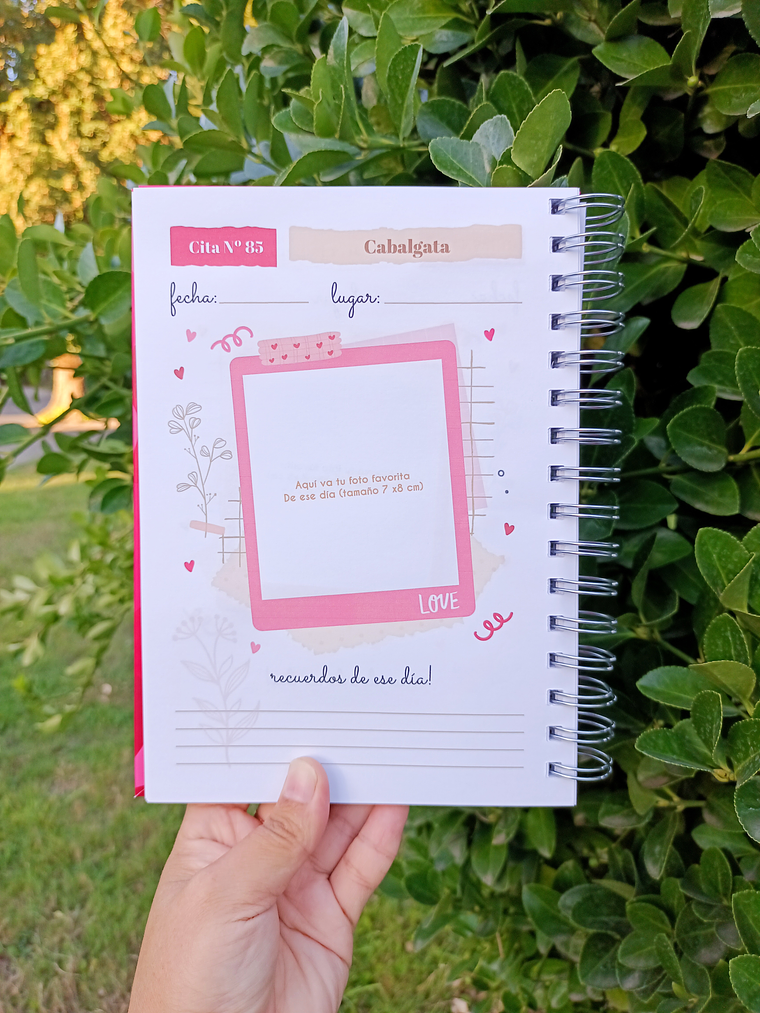 Cita Nº 85 Cabalgata
fecha: lugar:
Aquí va tu foto favorita
De ese día (tamaño 7 x8 cm)
LOVE
recuerdos de ese día!